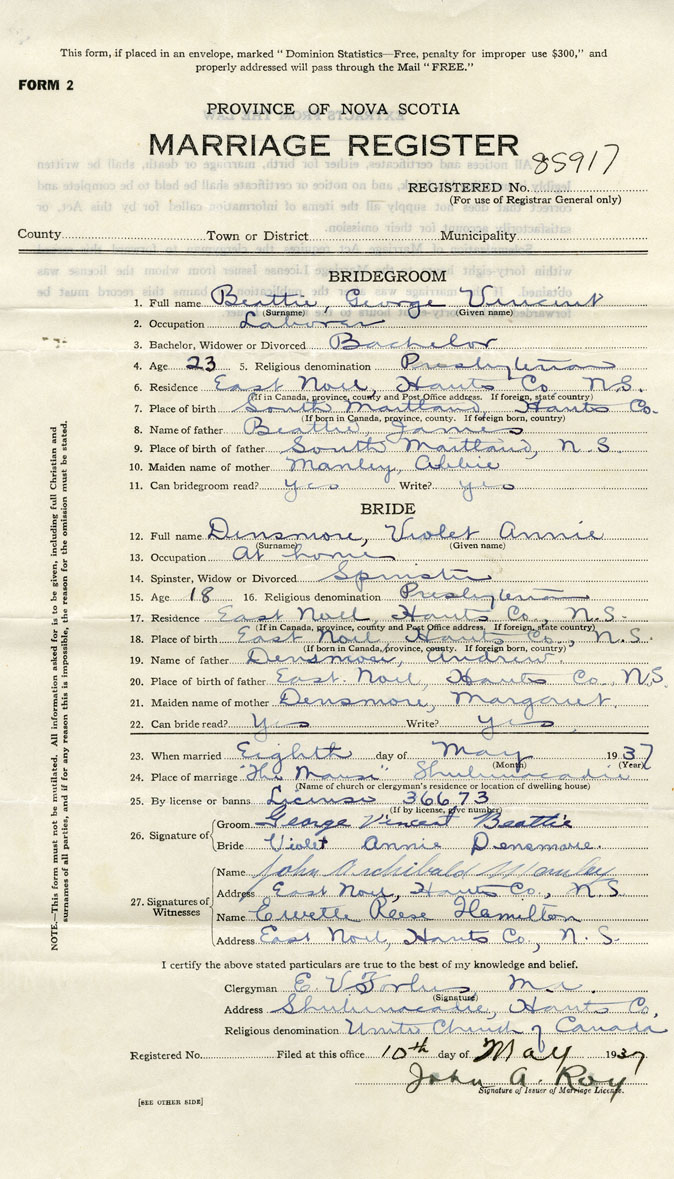 This form, if placed in an envelope, marked " Dominion Statistics—Free, penalty for improper use $300," and
properly addressed will pass through the Mail " FREE."
FORM 2
PROVINCE OF NOVA SCOTIA
MARRIAGE REGISTER
85917
REGISTERED No.
(For use of Registrar General only)
County Town or District Municipality
BRIDEGROOM
1. Full name Beattie, George Vincent
(Surname) (Given name)
2. Occupation Laborer
3. Bachelor, Widower or Divorced Bachelor
4. Age 23 5. Religious denomination Presbyterian
6. Residence East Noel, Hants Co N.S.
(If in Canada, province, county and Post Office address. If foreign, state country)
7. Place of birth South Maitland, Hants Co.
(If born in Canada, province, county. If foreign born, country)
8. Name of father Beattie, James
9. Place of birth of father South Maitland, N.S.
10. Maiden name of mother Manley, Abbie
11. Can bridegroom read? yes Write? yes
BRIDE
12. Full name Densmore, Violet Annie
(Surname) (Given name)
13. Occupation At home
14. Spinster, Widow or Divorced Spinster
15. Age 18 16. Religious denomination Presbyterian
17. Residence East Noel, Hants Co., N.S.
(If in Canada, province, county and Post Office address. If foreign, state country)
18. Place of birth East Noel, Hants Co., N.S.
(If born in Canada, province, county. If foreign born, country)
19. Name of father Densmore, Andrew.
20. Place of birth of father East Noel, Hants Co., N.S.
21. Maiden name of mother Densmore, Margaret.
22. Can bride read? Yes Write? Yes
23. When married Eighth day of May 1937
(Month) (Year)
24. Place of marriage "The Manse" Shubenacadie
(Name of church or clergyman's residence or location of dwelling house)
25. By license or banns License 36673
(If by license, give number)
26. Signature of Groom George Vincent Beattie
Bride Violet Annie Densmore.
27. Signatures of Witnesses
Name John Archibald Manley
Address East Noel, Hants Co., N.S
Name Reese Hamilton
Address East Noel, Hants Co., N.S.
I certify the above stated particulars are true to the best of my knowledge and belief.
Clergyman E. V. Forbes
(Signature)
Address Shubenacadie, Hants Co,
Religious denomination United Church of Canada
Registered No. Filed at this office 10th day of May 1937
John A. Roy
Signature of Issuer of Marriage License.
[SEE OTHER SIDE]
NOTE.—This form must not be mutilated. All information asked for is to be given, including full Christian and
surnames of all parties, and if for any reason this is impossible, the reason for the omission must be stated.